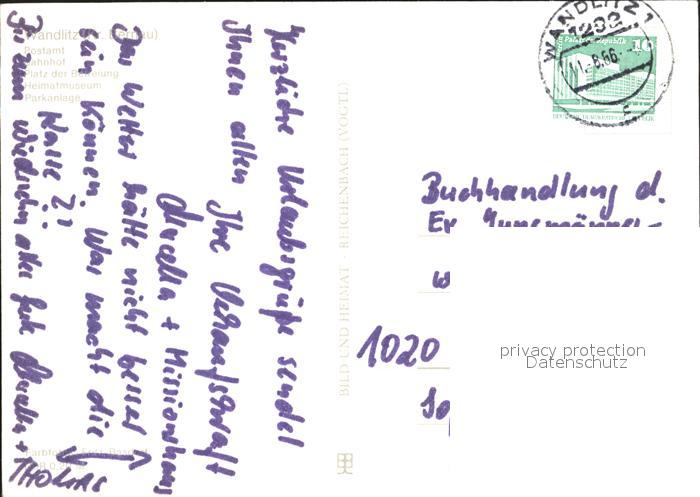 Wandlitz (Kr. Bernau)
Postamt
Bahnhof
Platz der Befreiung
Heimatmuseum
Parkanlage
Herzliche Urlaubsgrüße sendet
Ihnen allen Ihre Verkaufskraft
Marella + Missionshaus
Das Wetter hätte nicht besser
sein können. Was macht die
Kalle 2?
Für ein Wiedersehn alles Gute Marella +
THOMAS
BILD UND HEIMAT · REICHENBACH (VOGTL)
WANDLITZ 1
1292
11.-8.86
Palast Republik 10
DEUTSCHE DEMOKRATISCHE REPUBLIK
Buchhandlung d.
Ev.
1020
privacy protection
Datenschutz